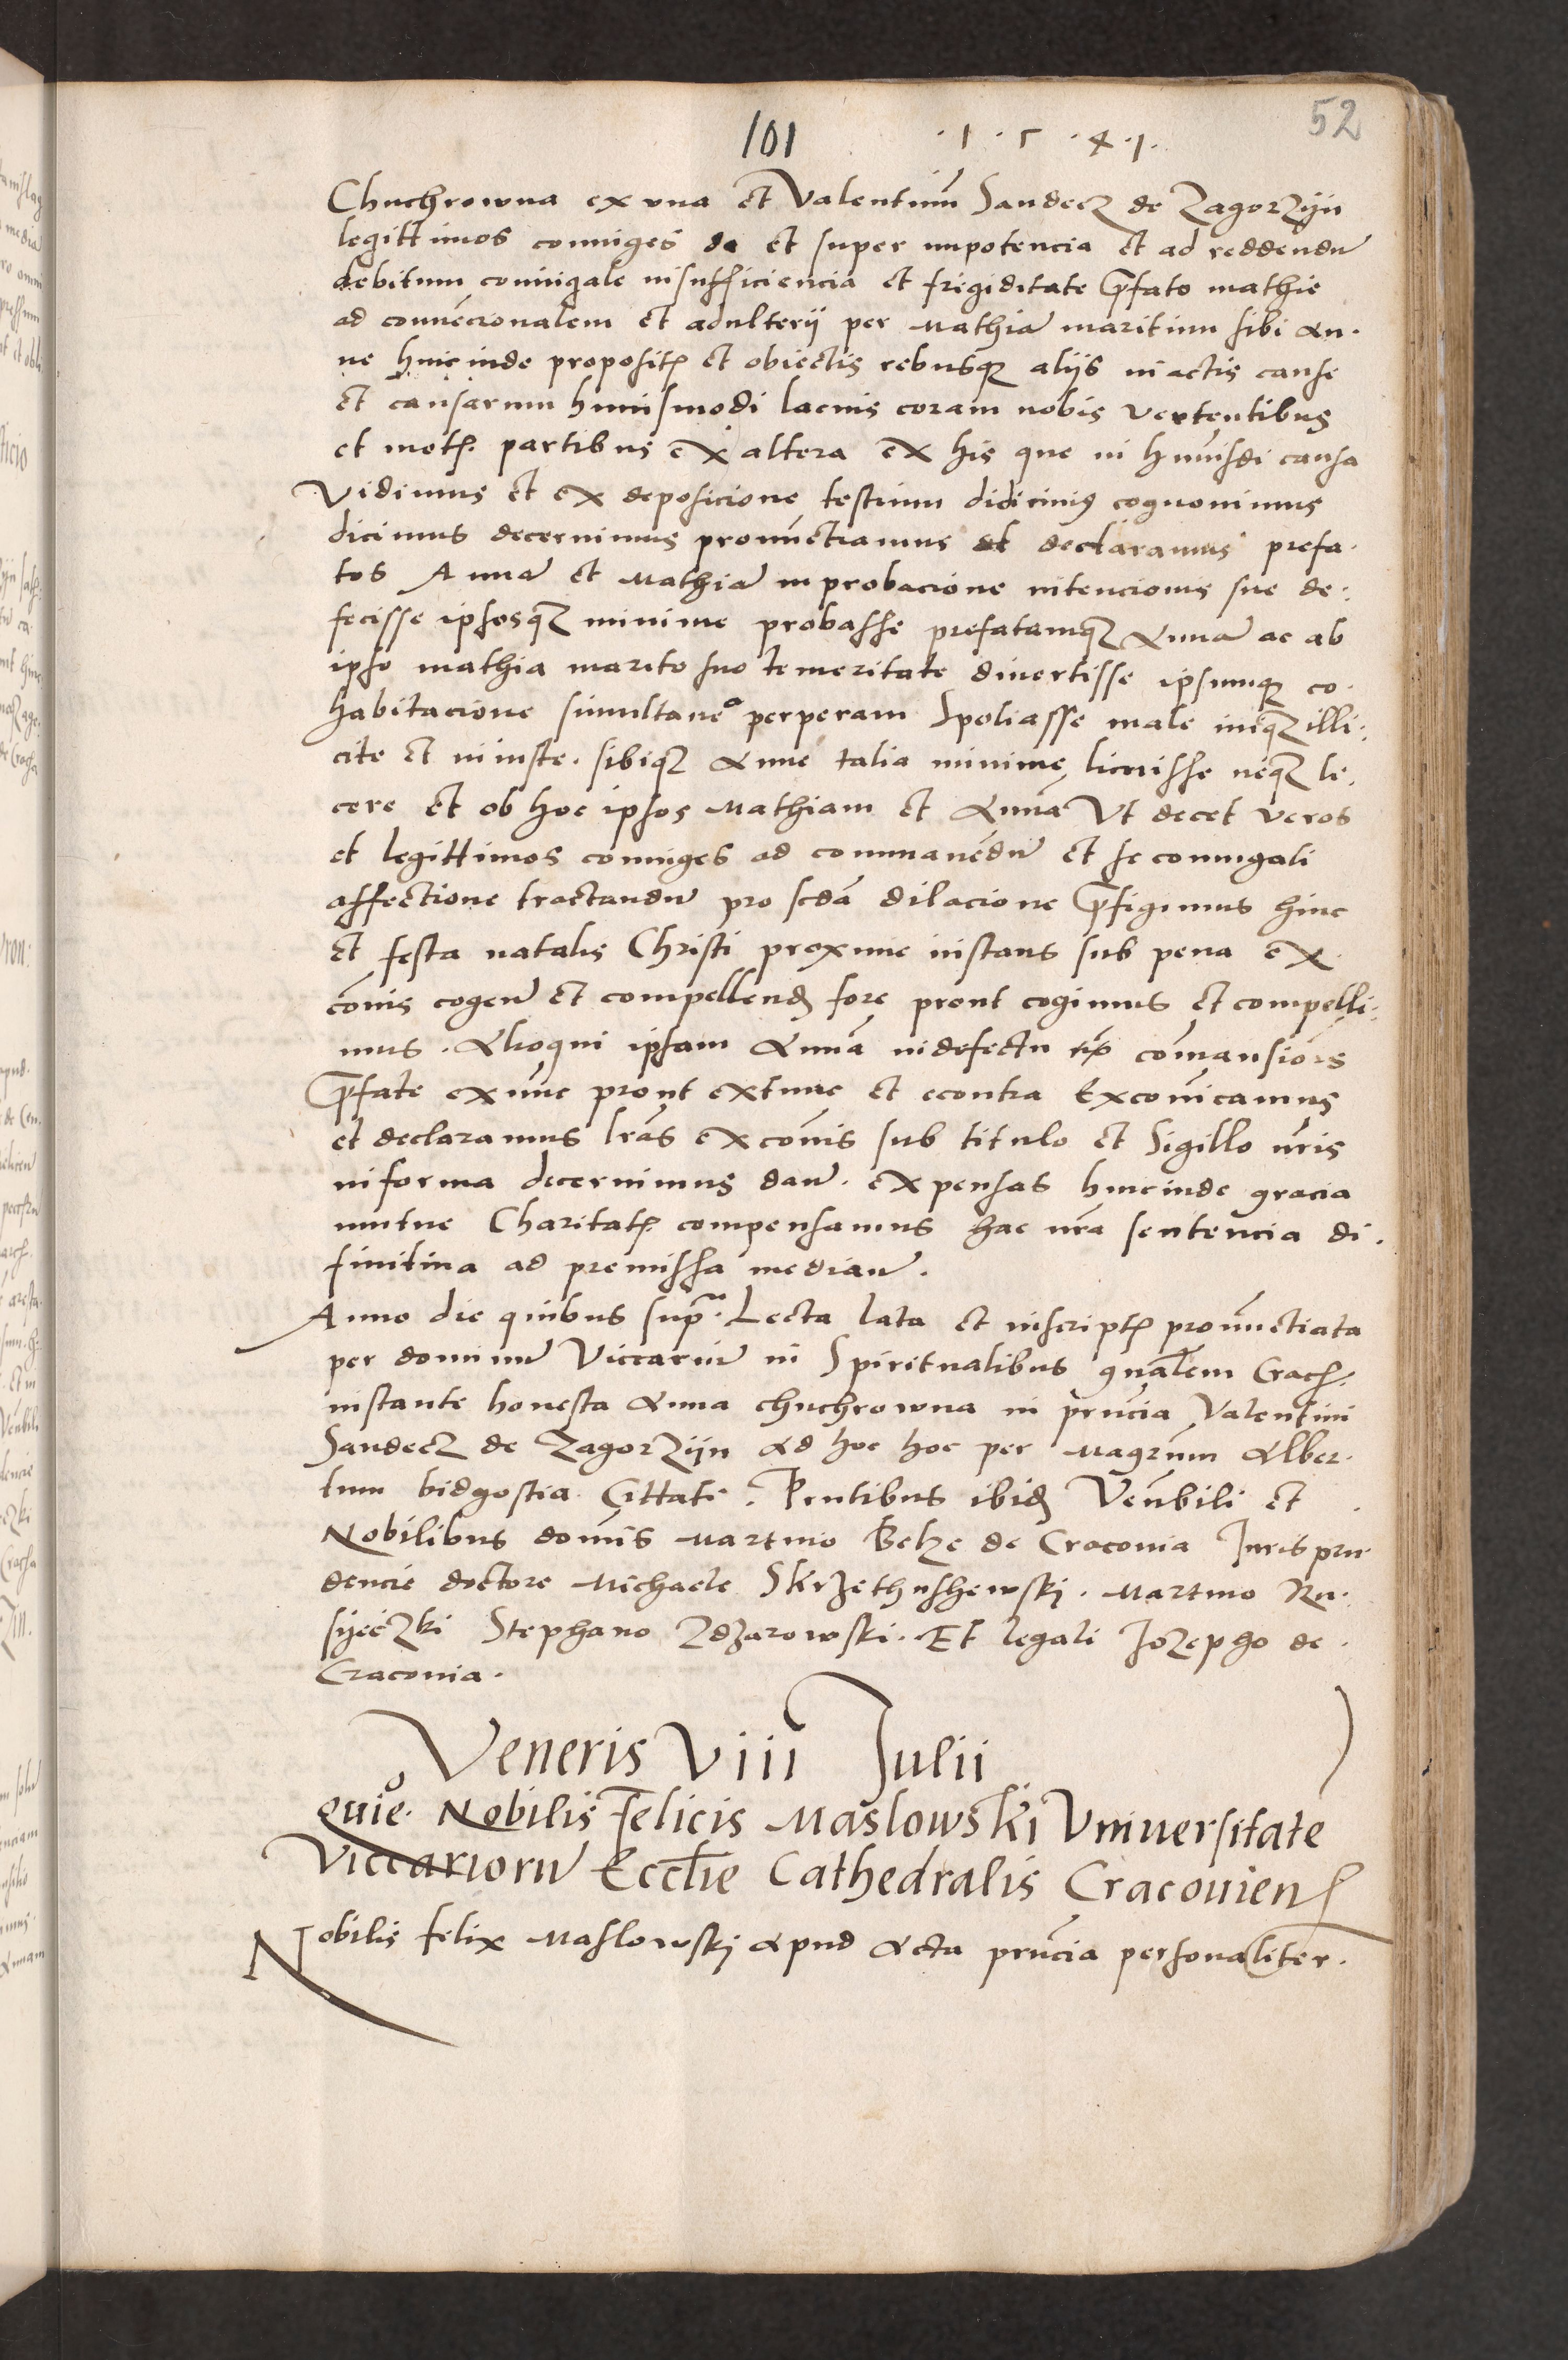 52
101 · 1 · 5 · 4 · 1 ·
Chuchrowna ex una et Valentinū Sandecz de Zagorzijn
legittimos coniuges de et super impotencia et ad reddendū
debitum coniugale insufficiencia et frigiditate p̄fato mathie
ad conuēcionalem et adulterij per Mathiā maritum sibi An·
ne hincinde proposit et obiectis rebusq aliis in actis cause
et causarum huiusmodi lacius coram nobis vertentibus
et mot partibus ex altera ex his que in hmōi causa
Vidimus et ex deposicione testium didicimus cognouimus
dicimus decernimus pronūctiamus et declaramus prefa·
tos Annā et Mathiā in probacione intencionis sue de·
fecisse ipsosqz minime probasse prefatamqz Annā ac ab
ipso mathia marito suo temeritate divertisse ipsumq co·
habitacione simultaneo perperam Spoliasse male iniqz illi·
cite et iniuste · sibiqz Anne talia minime licuisse neqz li·
cere et ob hoc ipsos Mathiam et Annā Vt decet veros
et legittimos coniuges ad commanēdū et se coniugali
affectione tractandū pro scdā dilacione p̄figimus hinc
et festa natalis Christi proxime instans sub pena ex·
cōnis cogenđ et compellenđ fore prout cogimus et compelli·
mus · Alioqui ipsam Annā in defectu cōmansionis
p̄fate exnunc prout extunc et econtra Excōīcamus
et declaramus lrās excōnis sub titulo et Sigillo nr̄is
in forma decernimus danđ · expensas hincinde gracia
mutue Charitat compensamus hac nrā sentencia di·
finitiua ad premissa medianē ·
Anno die quibus sup̄ · Lecta lata et inscript pronūctiata
per dominū Viccariū in Spiritualibus gnālem Crac ·
instante honesta Anna chuchrowna in pn̄cia Valentini
Sandecz de Zagorzijn Ad hoc hoc per Magrūm Alber·
tum bidgostia Cittati · Pn̄tibus ibiđ Venbili et
Nobilibus domīs Martino Belze de Cracouia Jurispru·
dencie doctore Michaele Skrzethushewskj · Martino Ru·
syeczki Stephano Zdzarowski · Et legali Jozepho de
Cracouia ·
Veneris Viii Julii
quie · Nobilis Felicis Maslowski Vniuersitate
Viccariorū Eccl̄ie Cathedralis Cracouien
Nobilis felix Maslowskj Apud Acta pn̄cia personaliter ·